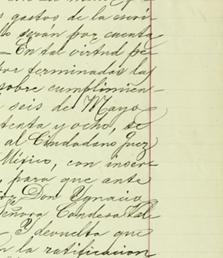 gastos de la escri
serán por cuenta
En tal virtud pe
por terminadas las
sobre cumplimien
seis de Mayo
tenta y ocho, se
al Ciudadano Juez
México, con inser
para que ante
Don Ygnacio
Señora Condesa
Y devuelta que
la ratificacion